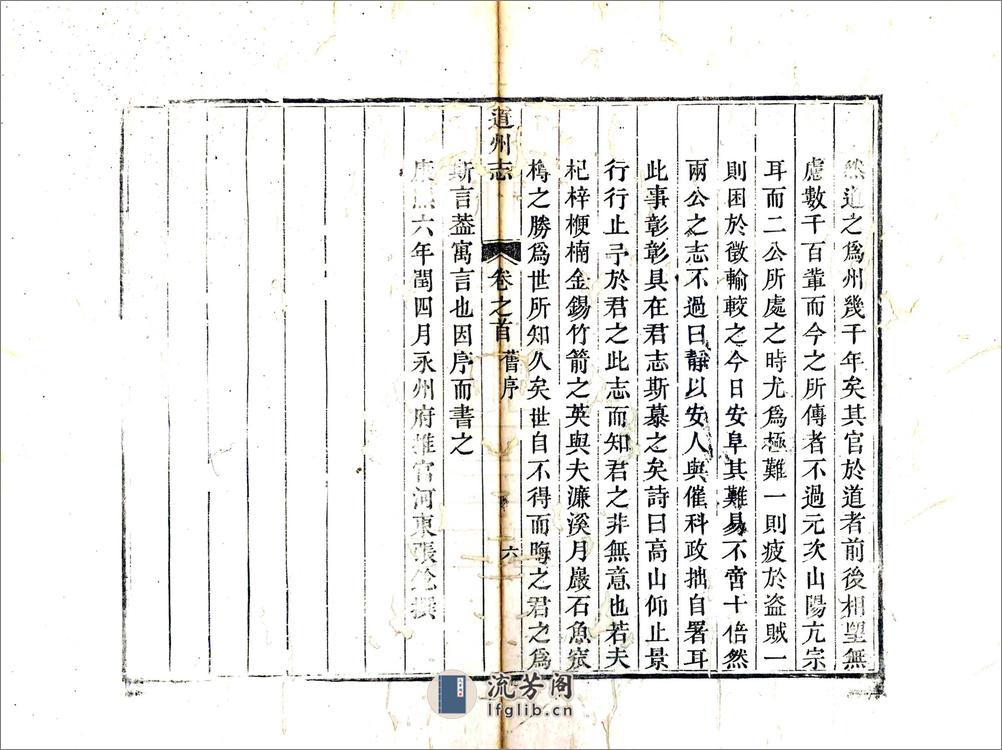 然道之爲州幾千年矣其官於道者前後相望無
慮數千百輩而今之所傳者不過元次山陽亢宗
耳而二公所處之時尤爲極難一則疲於盜賊一
則困於徵輸較之今日安阜其難易不啻十倍然
兩公之志不過曰靜以安人與催科政拙自署耳
此事彰彰具在君志斯慕之矣詩曰高山仰止景
行行止予於君之此志而知君之非無意也若夫
杞梓楩楠金錫竹箭之英與夫濂溪月巖石魚窊
樽之勝爲世所知久矣世自不得而晦之君之爲
道州志 卷之首 舊序 六
斯言蓋寓言也因序而書之
康熙六年閏四月永州府推官河東張撰
流芳阁
lfglib.cn